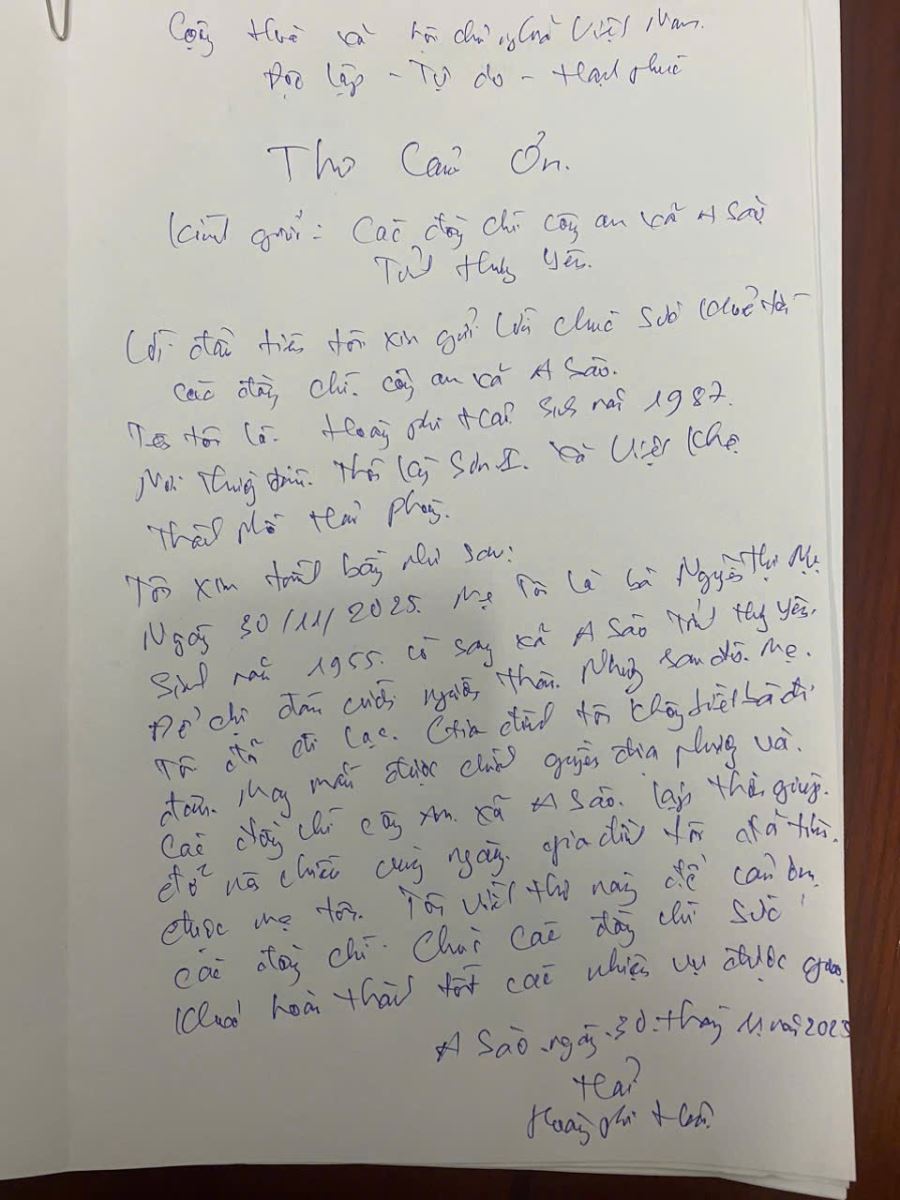 Cộng hoà xã hội chủ nghĩa Việt Nam.
Độc lập - Tự do - Hạnh phúc
Thư Cảm Ơn.
Kính gửi: Các đồng chí công an xã A Sào
Tỉnh Hưng Yên.
Lời đầu tiên tôi xin gửi lời chúc sức khoẻ tới
các đồng chí công an xã A Sào.
Tên tôi là Hoàng Phi Hải sinh năm 1987.
Nơi thường trú. Thôn Sơn I. Xã Việt Khê
Thành Phố Hải Phòng.
Tôi xin trình bày như sau:
Ngày 30/11/2025. Mẹ Tôi là bà Nguyễn Thị Mẹ
Sinh năm 1955. có sang xã A Sào Tỉnh Hưng Yên.
Để dự đám cưới người thân. Nhưng sau đó. Mẹ.
Tôi đã đi lạc. Gia đình tôi không biết bà đi
đâu. May mắn được chính quyền địa phương và.
Các đồng chí công an xã A Sào. giúp.
đỡ và chiều cùng ngày. gia đình tôi đã tìm.
được mẹ tôi. Tôi viết thư này để cảm ơn
các đồng chí. Chúc các đồng chí sức
khoẻ hoàn thành tốt các nhiệm vụ được giao
A Sào. ngày. 30. tháng 11. năm 2025
Hải
Hoàng Phi Hải